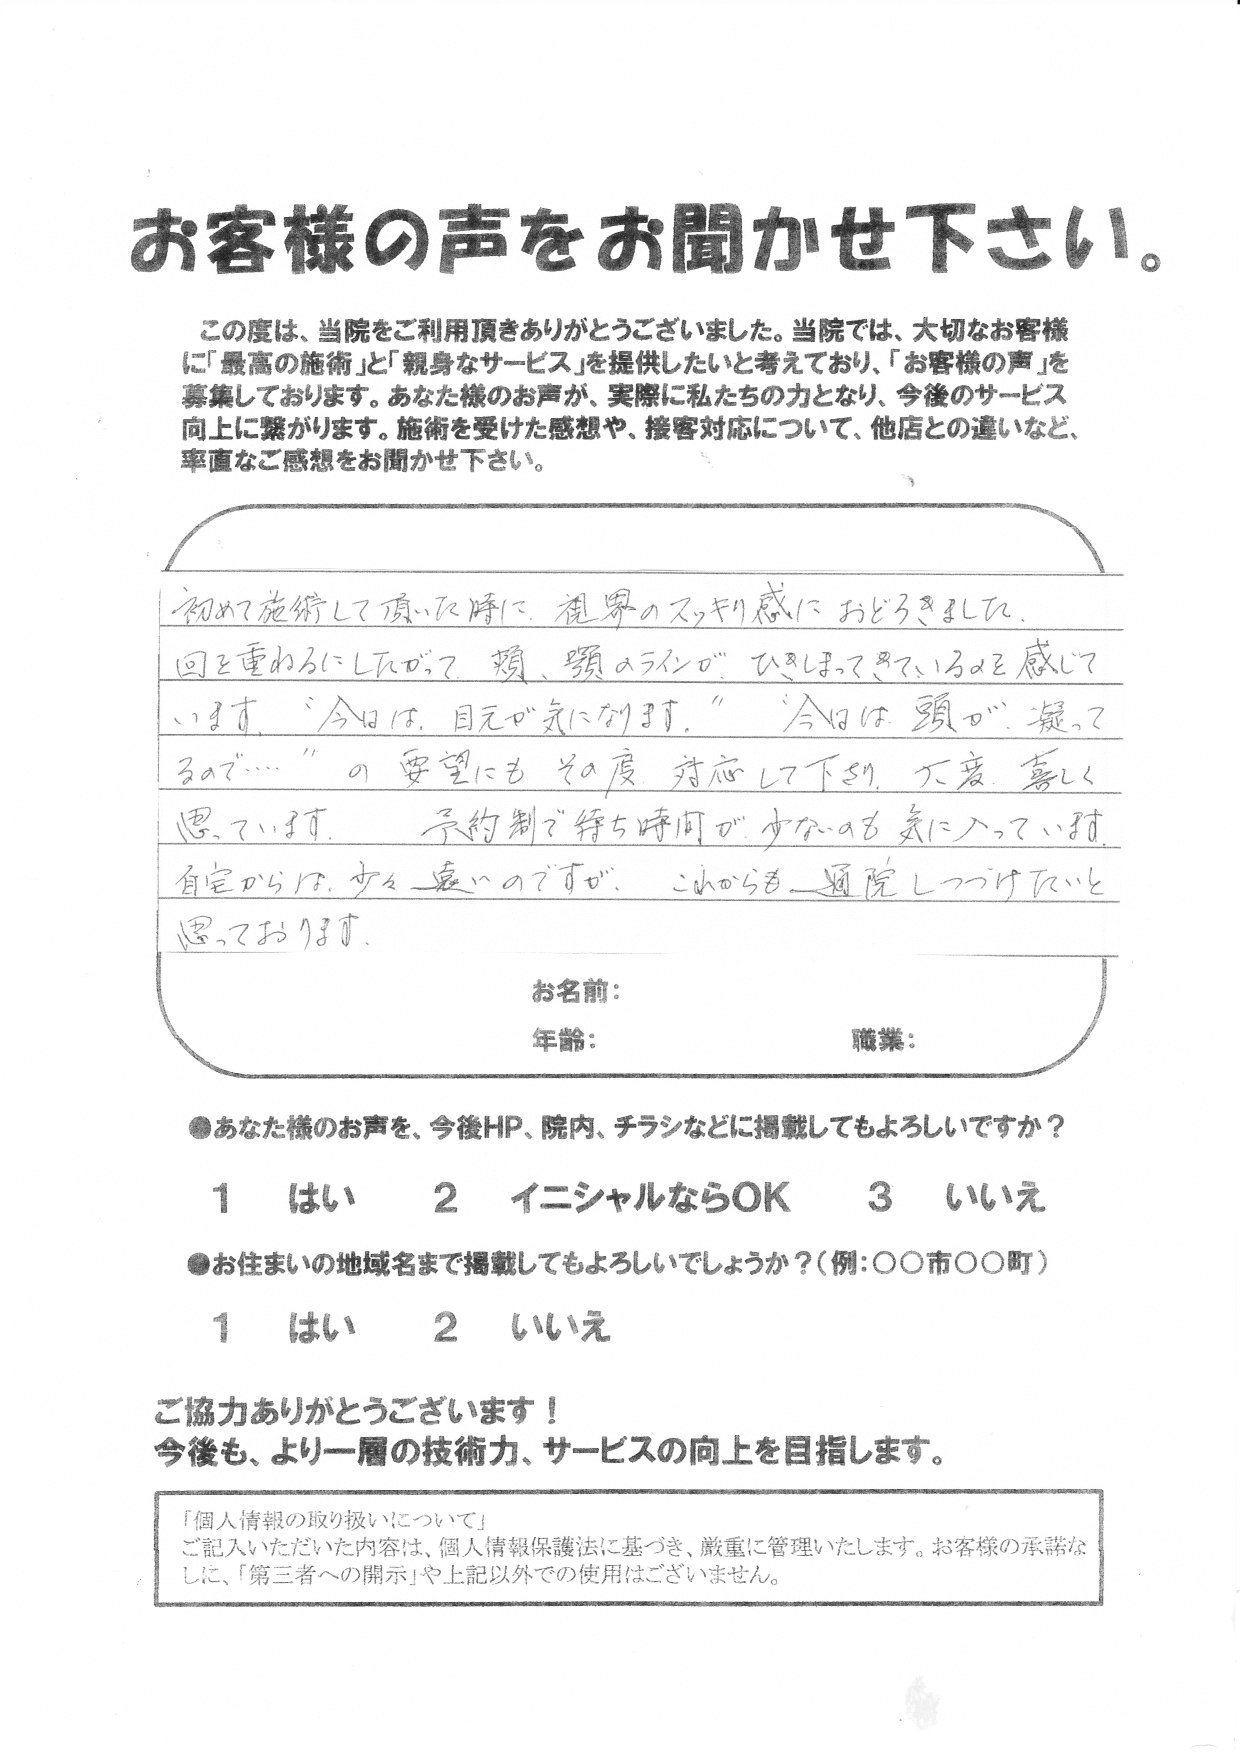 お客様の声をお聞かせ下さい。
この度は、当院をご利用頂きありがとうございました。当院では、大切なお客様
に「最高の施術」と「親身なサービス」を提供したいと考えており、「お客様の声」を
募集しております。あなた様のお声が、実際に私たちの力となり、今後のサービス
向上に繋がります。施術を受けた感想や、接客対応について、他店との違いなど、
率直なご感想をお聞かせ下さい。
初めて施術して頂いた時に、視界のスッキリ感におどろきました。
回を重ねるにしたがって、頬、顎のラインが、ひきしまってきているのを感じて
います。“今日は、目元が気になります。” “今日は、頭が、凝って
るので‥‥”の要望にもその度、対応して下さり、大変、喜しく
思っています。 予約制で待ち時間が、少ないのも気に入っています。
自宅からは、少々遠いのですが、これからも通院しつづけたいと
思っております。
お名前:
年齢: 職業:
●あなた様のお声を、今後HP、院内、チラシなどに掲載してもよろしいですか？
1 はい 2 イニシャルならOK 3 いいえ
●お住まいの地域名まで掲載してもよろしいでしょうか？(例:〇〇市〇〇町)
1 はい 2 いいえ
ご協力ありがとうございます！
今後も、より一層の技術力、サービスの向上を目指します。
「個人情報の取り扱いについて」
ご記入いただいた内容は、個人情報保護法に基づき、厳重に管理いたします。お客様の承諾な
しに、「第三者への開示」や上記以外での使用はございません。